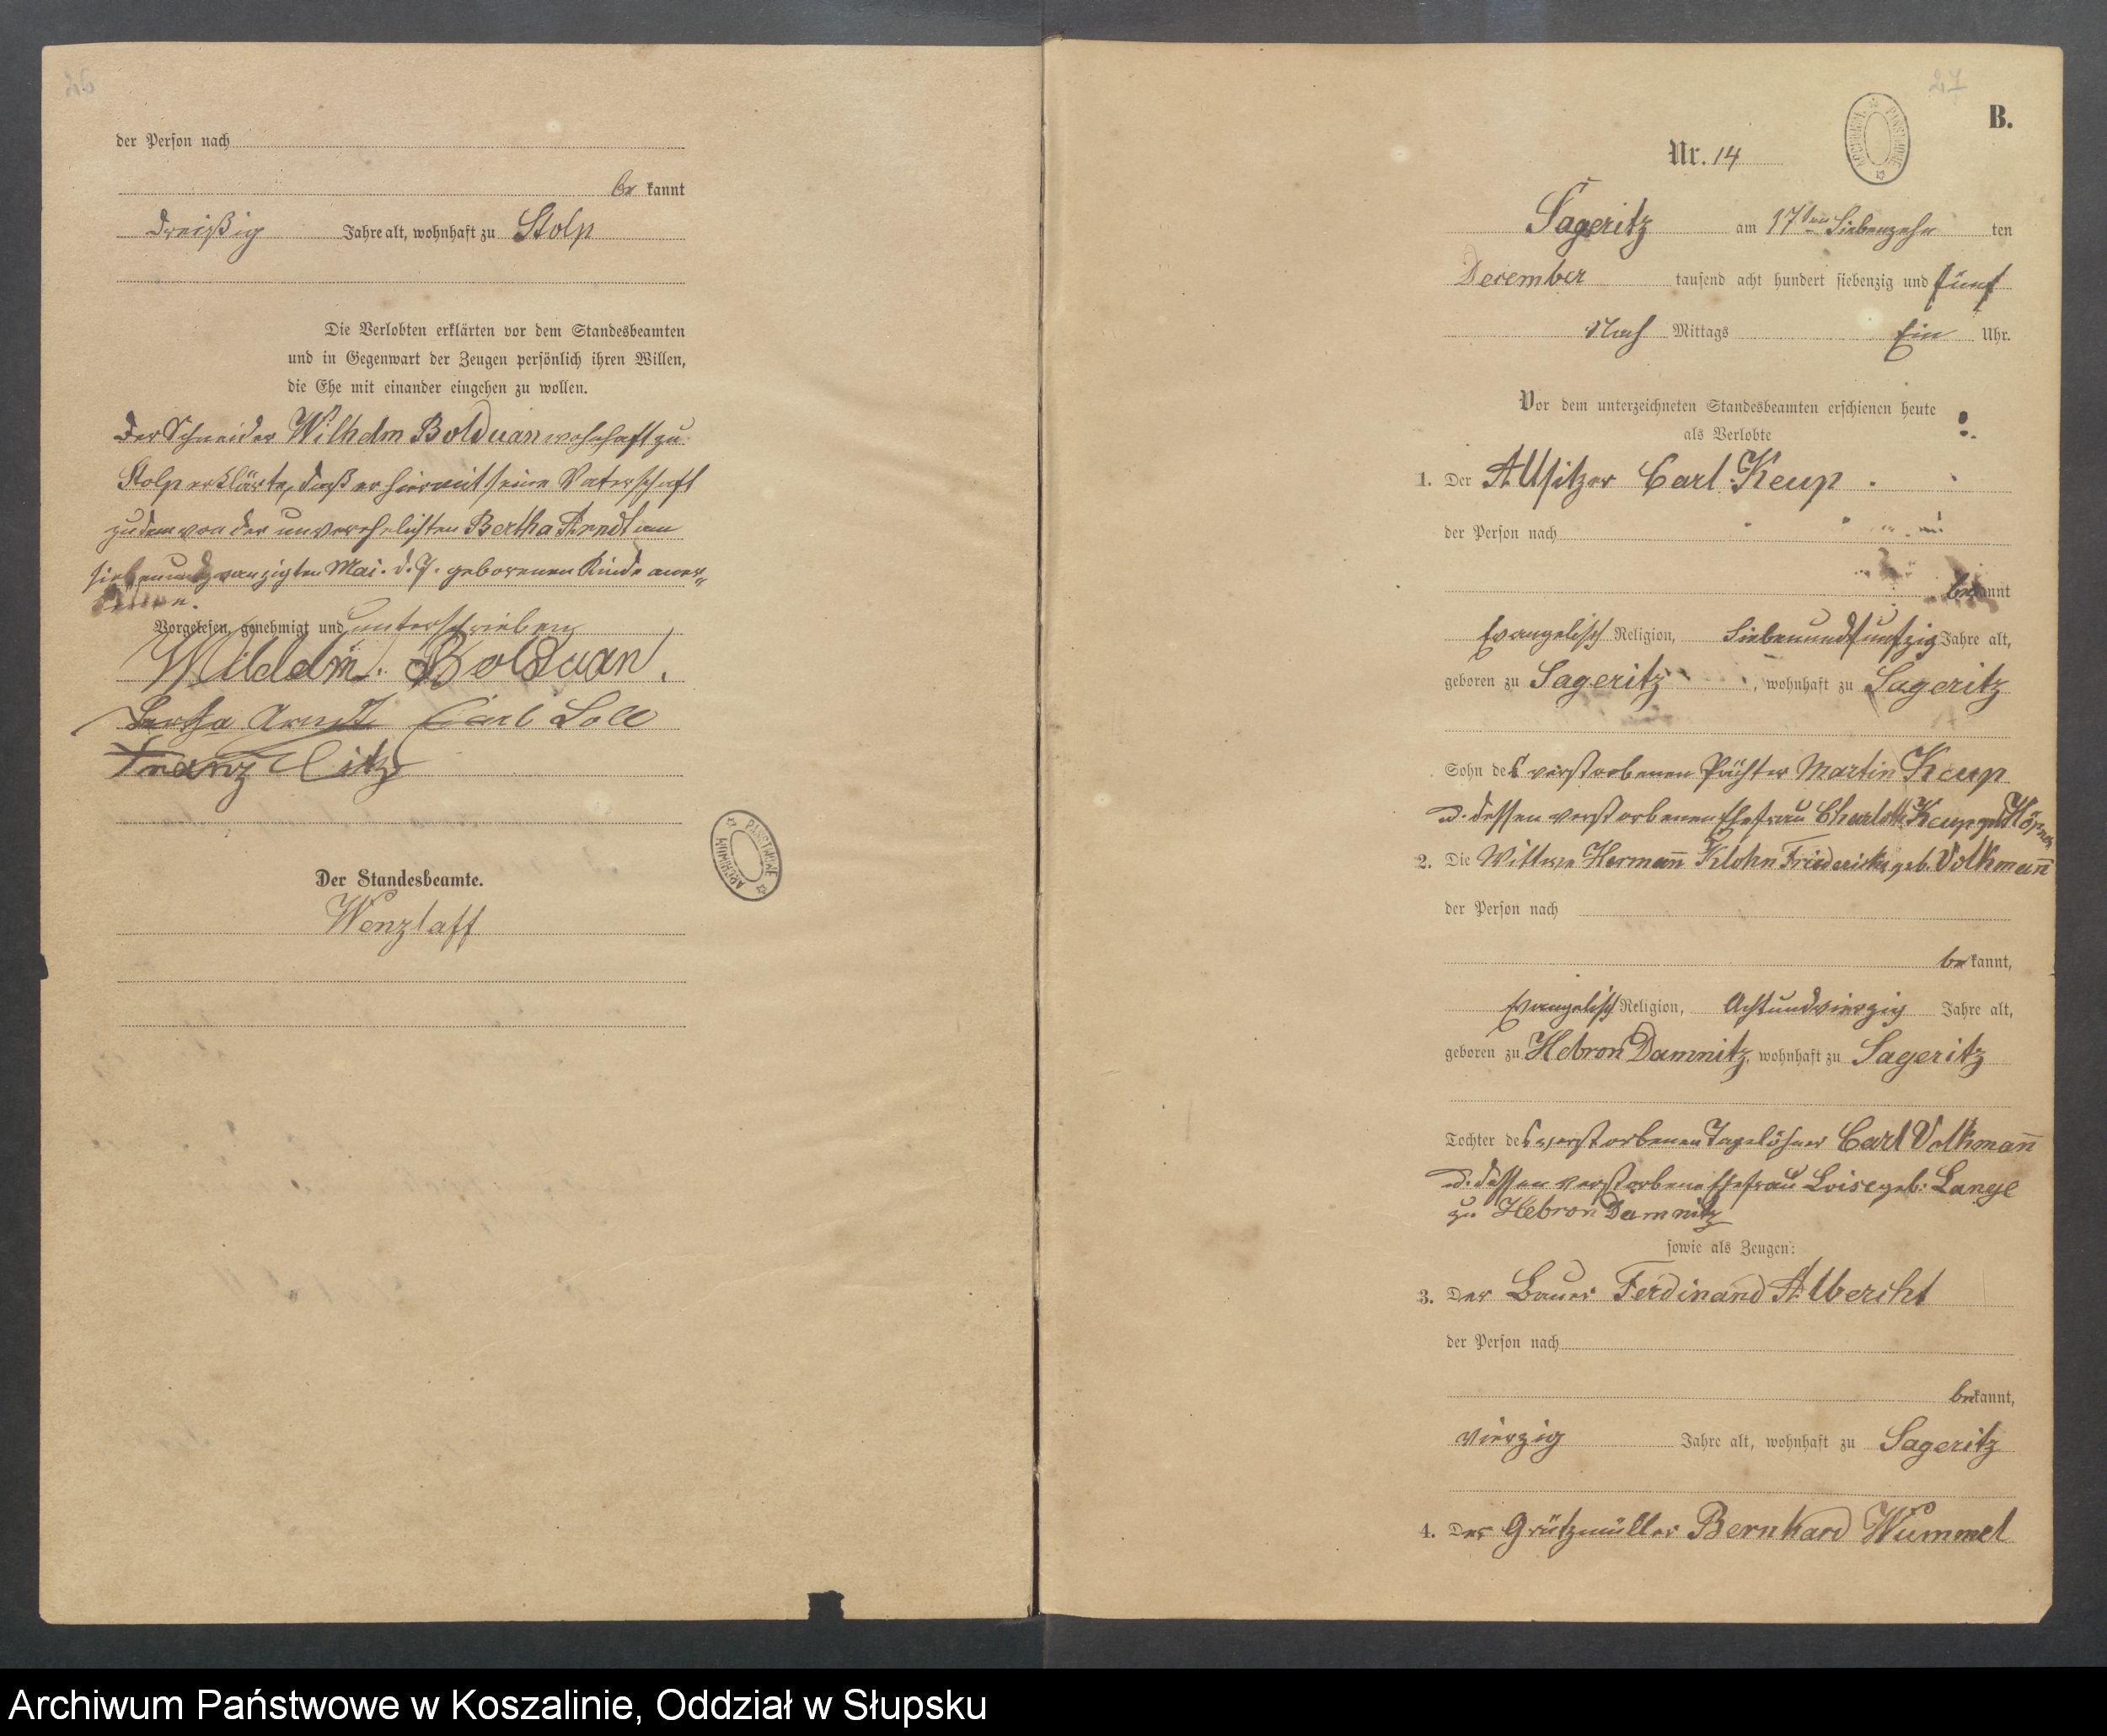 der Person nach
be kannt
dreißig Jahre alt, wohnhaft zu Stolp
Die Verlobten erklärten vor dem Standesbeamten
und in Gegenwart der Zeugen persönlich ihren Willen,
die Ehe mit einander eingehen zu wollen.
Der Schneider Wilhelm Bolduan wohnhaft zu
Stolp erklärte, daß er hiermit seine Vaterschaft
zu dem von der unverehelichten Bertha Arndt am
siebenundzwanzigten Mai. d. J. geborenen Kinde aner„
Vorgelesen, genehmigt und unterschrieben
Wilhelm Bolduan.
Bertha Arndt Carl
Franz
Der Standesbeamte.
Wenzlaff
ARCHIWUM PAŃSTWOWE
27
B.
Nr. 14
ARCHIWUM PAŃSTWOWE
Sageritz am 17ten Siebenzehn ten
December tausend acht hundert siebenzig und fünf
Nach Mittags Ein Uhr.
Vor dem unterzeichneten Standesbeamten erschienen heute
als Verlobte
1. Der Altsitzer Carl Keup
der Person nach
bekannt
Evangelisch Religion, Siebenundfunfzig Jahre alt,
geboren zu Sageritz, wohnhaft zu Sageritz
Sohn des verstorbenen Pächter Martin Keup
u. dessen verstorbenen Ehefrau Charlotte Keup geb.
2. Die Wittwe Hermann Klohn Friederike geb. Volkmann
der Person nach
bekannt,
Evangelisch Religion, Achtundvierzig Jahre alt,
geboren zu Hebron Damnitz, wohnhaft zu Sageritz
Tochter des verstorbenen Tagelöhner Carl Volkmann
u. dessen verstorbene Ehefrau Loise geb. Lange
zu Hebron Damnitz
sowie als Zeugen:
3. Der Bauer Ferdinand Albericht
der Person nach
bekannt,
vierzig Jahre alt, wohnhaft zu Sageritz
4. Der Grützmüller Bernhard Wummel
Archiwum Państwowe w Koszalinie, Oddział w Słupsku